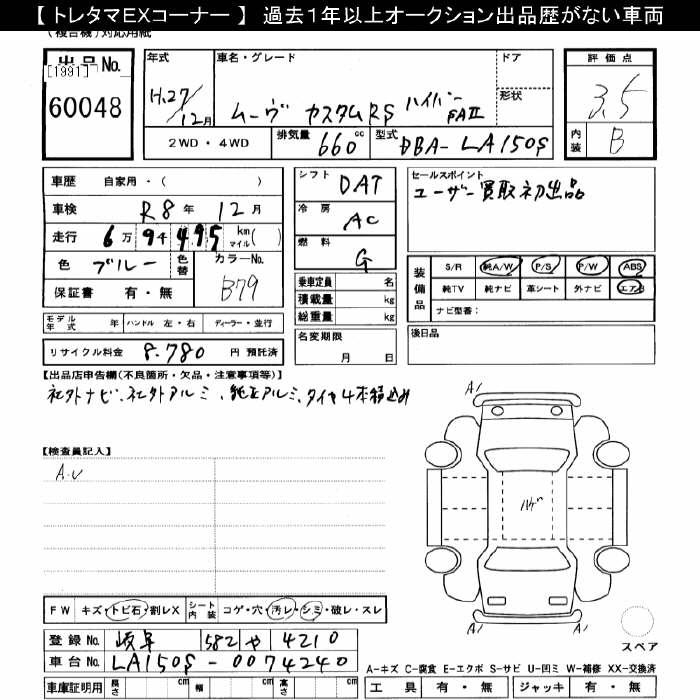 【 トレタマEXコーナー 】 過去１年以上オークション出品歴がない車両
(複合機)対応用紙
出品No.
[1991]
60048
年式
H.27/12月
車名・グレード
ムーヴ カスタムRS ハイパーSAⅡ
ドア
形状
2WD・4WD
排気量 660 cc
型式 DBA-LA150S
評価点
3.5
内装 B
車歴 自家用・( )
車検 R8年 12月
走行 6万 9千 495 km マイル( )
色 ブルー 色替 カラーNo. B79
保証書 有・無
モデル年式 年 ハンドル 左・右 ディーラー・並行
リサイクル料金 8.780 円 預託済
シフト DAT
冷房 AC
燃料 G
乗車定員 名
積載量 kg
総重量 kg
名変期限
月 日
セールスポイント
ユーザー買取初出品
装備品
S/R 純A/W P/S P/W ABS
純TV 純ナビ 革シート 外ナビ エアB
ナビ型番：
後日品
【出品店申告欄(不良箇所・欠品・注意事項等)】
社外ナビ、社外アルミ、純正アルミ、タイヤ4本積込み
【検査員記入】
A.U
A1 A1
ハゲ
A1 A1
FW キズ・トビ石・割レX シート内装 コゲ・穴・汚レ・シミ・破レ・スレ
登録No. 岐阜 582 や 4210
車台No. LA150S-0074240
車庫証明用 長さ cm 幅 cm 高さ cm
スペア
A-キズ C-腐食 E-エクボ S-サビ U-凹ミ W-補修 XX-交換済
工具 有・無 ジャッキ 有・無